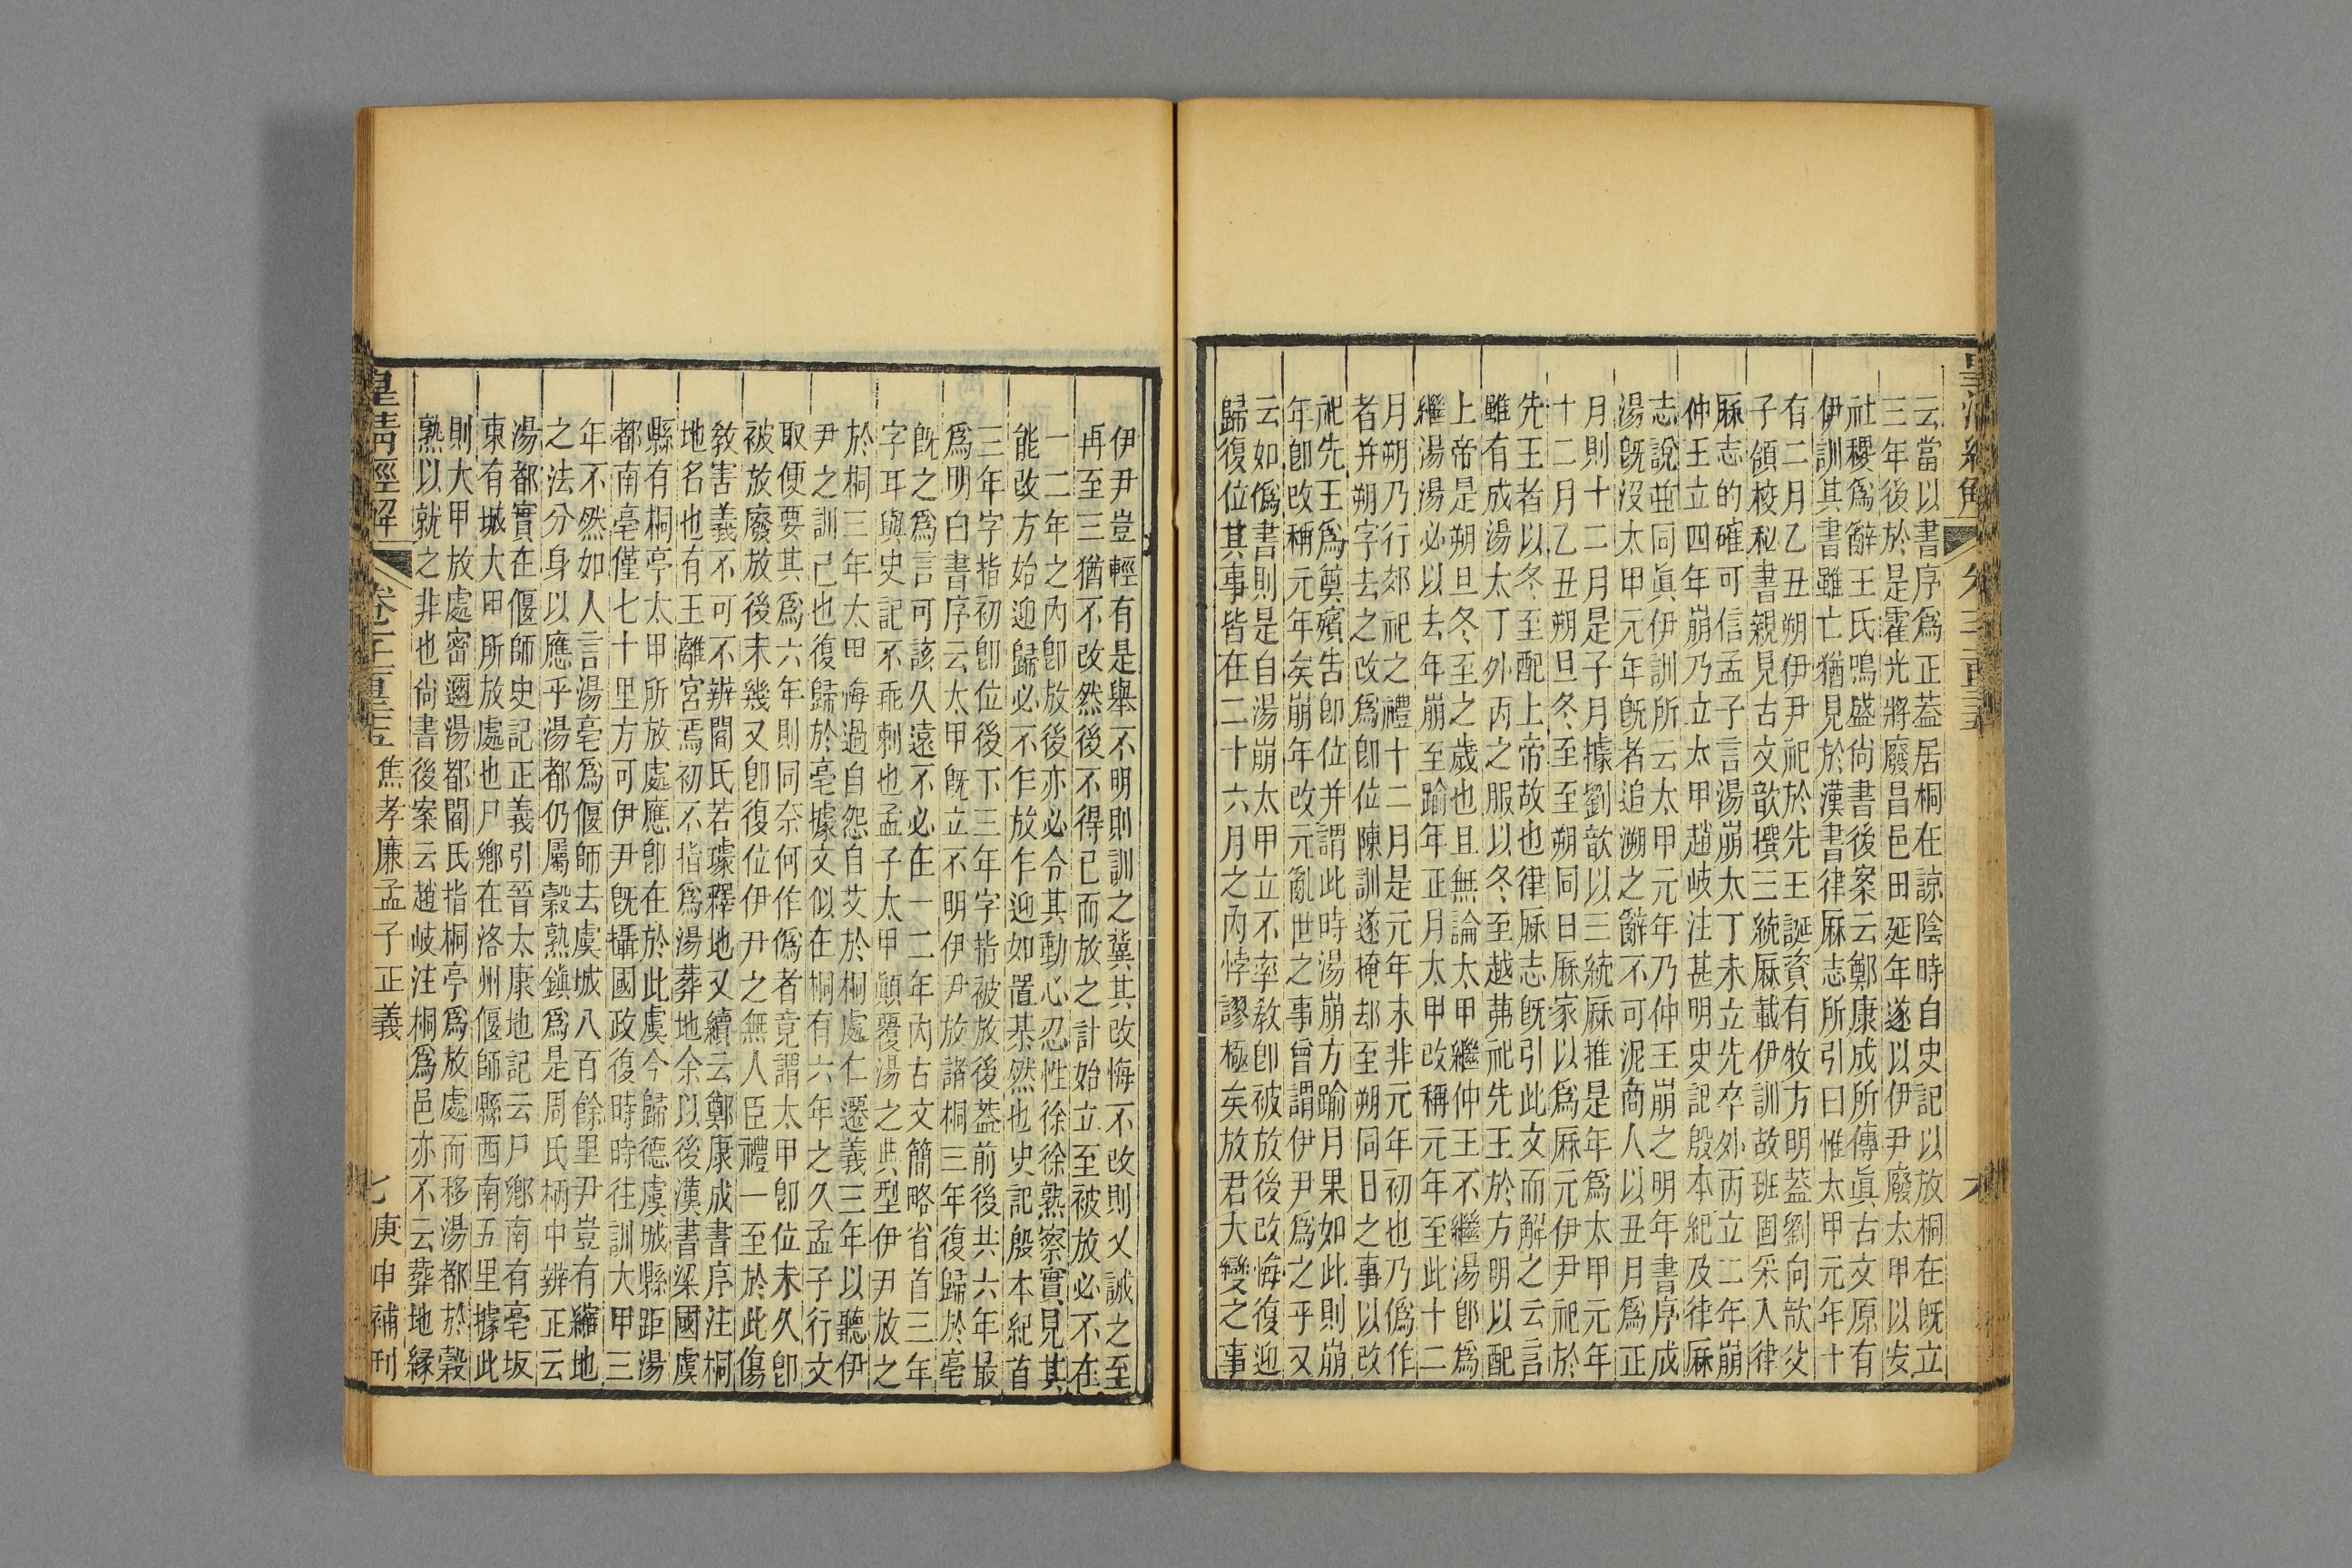 云當以書序爲正葢居桐在諒陰時自史記以放桐在旣立
三年後於是霍光將廢昌邑田延年遂以伊尹廢太甲以安
社稷爲辭王氏鳴盛尙書後案云鄭康成所傳眞古文原有
伊訓其書雖亡猶見於漢書律厤志所引曰惟太甲元年十
有二月乙丑朔伊尹祀於先王誕資有牧方明葢劉向歆父
子領校秘書親見古文歆撰三統厤載伊訓故班固采入律
厤志的確可信孟子言湯崩太丁未立先卒外丙立二年崩
仲王立四年崩乃立太甲趙岐注甚明史記殷本紀及律厤
志說竝同眞伊訓所云太甲元年乃仲王崩之明年書序成
湯旣沒太甲元年旣者追溯之辭不可泥商人以丑月爲正
月則十二月是子月據劉歆以三統厤推是年爲太甲元年
十二月乙丑朔旦冬至至朔同日厤家以爲厤元伊尹祀於
先王者以冬至配上帝故也律厤志旣引此文而解之云言
雖有成湯太丁外丙之服以冬至越茀祀先王於方明以配
上帝是朔旦冬至之歲也且無論太甲繼仲王不繼湯卽爲
繼湯湯必以去年崩至踰年正月太甲改稱元年至此十二
月朔乃行郊祀之禮十二月是元年末非元年初也乃僞作
者并朔字去之改爲卽位陳訓遂掩却至朔同日之事以改
祀先王爲奠殯告卽位并謂此時湯崩方踰月果如此則崩
年卽改稱元年矣崩年改元亂世之事曾謂伊尹爲之乎又
云如僞書則是自湯崩太甲立不率敎卽被放後改悔復迎
歸復位其事皆在二十六月之內悖謬極矣放君大變之事
伊尹豈輕有是舉不明則訓之冀其改悔不改則又誠之至
再至三猶不改然後不得已而放之計始立至被放必不在
一二年之內卽放後亦必令其動心忍性徐徐熟察實見其
能改方始迎歸必不乍放乍迎如置棊然也史記殷本紀首
三年字指初卽位後下三年字指被放後葢前後共六年最
爲明白書序云太甲旣立不明伊尹放諸桐三年復歸於亳
旣之爲言可該久遠不必在一二年內古文簡略省首三年
字耳與史記不乖剌也孟子太甲顚覆湯之典型伊尹放之
於桐三年太甲悔過自怨自艾於桐處仁遷義三年以聽伊
尹之訓己也復歸於亳據文似在桐有六年之久孟子行文
取便要其爲六年則同奈何作僞者竟謂太甲卽位未久卽
被放廢放後未幾又卽復位伊尹之無人臣禮一至於此傷
敎害義不可不辨閻氏若璩釋地又續云鄭康成書序注桐
地名也有王離宮焉初不指爲湯葬地余以後漢書梁國虞
縣有桐亭太甲所放處應卽在於此虞今歸德虞城縣距湯
都南亳僅七十里方可伊尹旣攝國政復時時往訓大甲三
年不然如人言湯亳爲偃師去虞城八百餘里尹豈有縮地
之法分身以應乎湯都仍屬穀熟鎭爲是周氏柄中辨正云
湯都實在偃師史記正義引晉太康地記云尸鄕南有亳坂
東有城大甲所放處也尸鄕在洛州偃師縣西南五里據此
則大甲放處密邇湯都閻氏指桐亭爲放處而移湯都於穀
熟以就之非也尙書後案云趙岐注桐爲邑亦不云葬地緣
皇淸經解 焦孝廉孟子正義 七 庚申補刊